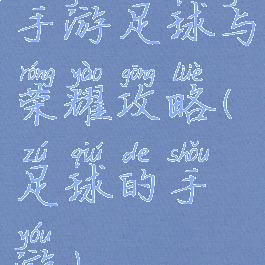 手游足球与
róng yào gōng lüè
荣耀攻略(
zú qiú de shǒu
足球的手
yóu
游)